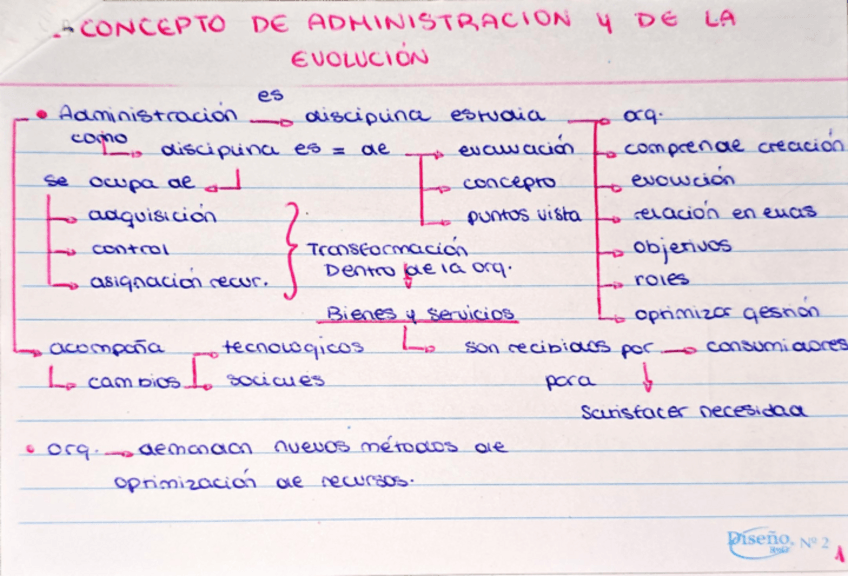 CONCEPTO DE ADMINISTRACION Y DE LA
EVOLUCIÓN
es
• Administración → disciplina estudia → org.
como → disciplina es = de → evaluación → comprende creación
se ocupa de → concepto → evolución
→ adquisición → puntos vista → relación en ellas
→ control Transformación → objetivos
→ asignación recur. Dentro de la org. → roles
Bienes y servicios → optimizar gestión
→ acompaña → tecnologicos → son recibidos por → consumidores
→ cambios → sociales para
Satisfacer necesidad
• org. → demandan nuevos métodos de
optimización de recursos.
Diseño Nº 2
1